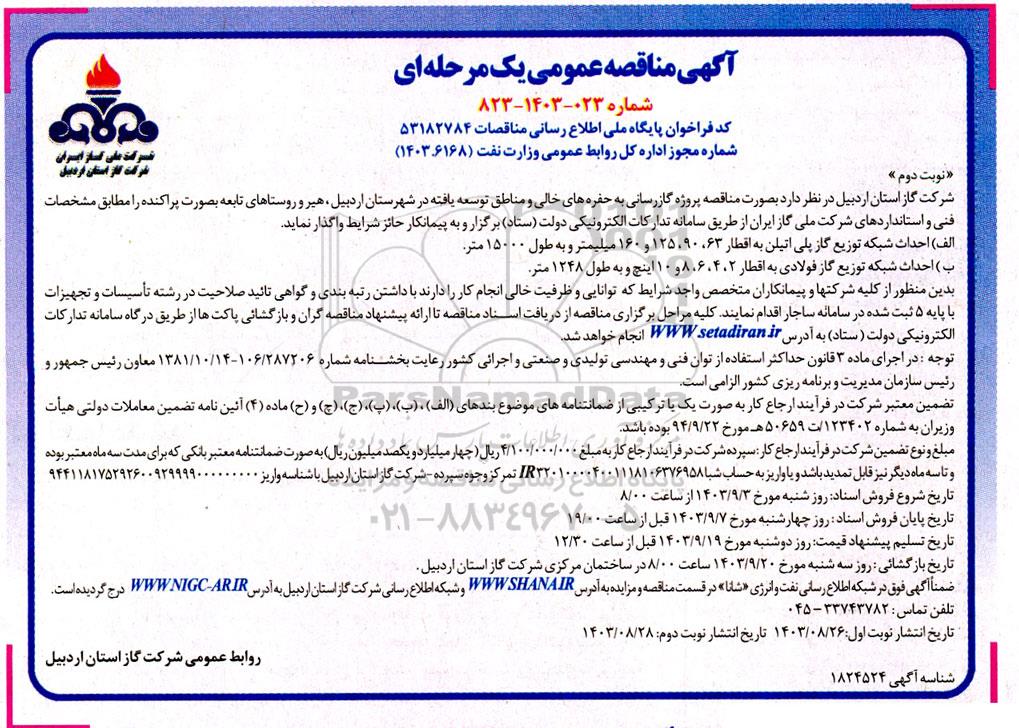 آگهی مناقصه عمومی یک مرحله‌ای
شماره ۰۲۳-۱۴۰۳-۸۲۳
کد فراخوان پایگاه ملی اطلاع رسانی مناقصات ۵۳۱۸۲۷۸۴
شماره مجوز اداره کل روابط عمومی وزارت نفت (۱۴۰۳.۶۱۶۸)
شرکت ملی گاز ایران
شرکت گاز استان اردبیل
«نوبت دوم»
شرکت گاز استان اردبیل در نظر دارد بصورت مناقصه پروژه گازرسانی به حفره‌های خالی و مناطق توسعه یافته در شهرستان اردبیل، هیر و روستاهای تابعه بصورت پراکنده را مطابق مشخصات
فنی و استانداردهای شرکت ملی گاز ایران از طریق سامانه تدارکات الکترونیکی دولت (ستاد) برگزار و به پیمانکار حائز شرایط واگذار نماید.
الف) احداث شبکه توزیع گاز پلی اتیلن به اقطار ۶۳، ۹۰، ۱۲۵ و ۱۶۰ میلیمتر و به طول ۱۵۰۰۰ متر.
ب) احداث شبکه توزیع گاز فولادی به اقطار ۲، ۴، ۶، ۸ و ۱۰ اینچ و به طول ۱۲۴۸ متر.
بدین منظور از کلیه شرکتها و پیمانکاران متخصص واجد شرایط که توانایی و ظرفیت خالی انجام کار را دارند با داشتن رتبه بندی و گواهی تائید صلاحیت در رشته تأسیسات و تجهیزات
با پایه ۵ ثبت شده در سامانه ساجار اقدام نمایند. کلیه مراحل برگزاری مناقصه از دریافت اسناد مناقصه تا ارائه پیشنهاد مناقصه گران و بازگشائی پاکت‌ها از طریق درگاه سامانه تدارکات
الکترونیکی دولت (ستاد) به آدرس WWW.setadiran.ir انجام خواهد شد.
توجه : در اجرای ماده ۳ قانون حداکثر استفاده از توان فنی و مهندسی تولیدی و صنعتی و اجرائی کشور رعایت بخشنامه شماره ۱۰۶/۲۸۷۲۰۶-۱۳۸۱/۱۰/۱۴ معاون رئیس جمهور و
رئیس سازمان مدیریت و برنامه ریزی کشور الزامی است.
تضمین معتبر شرکت در فرآیند ارجاع کار به صورت یک یا ترکیبی از ضمانتنامه های موضوع بندهای (الف)، (ب)، (پ)، (ج)، (چ) و (ح) ماده (۴) آئین نامه تضمین معاملات دولتی هیأت
وزیران به شماره ۱۲۳۴۰۲/ت ۵۰۶۵۹ هـ مورخ ۹۴/۹/۲۲ بوده باشد.
مبلغ و نوع تضمین شرکت در فرآیند ارجاع کار : سپرده شرکت در فرآیند ارجاع کار به مبلغ ۴/۱۰۰/۰۰۰/۰۰۰ ریال (چهار میلیارد و یکصد میلیون ریال) به صورت ضمانتنامه معتبر بانکی که برای مدت سه ماه معتبر بوده
و تا سه ماه دیگر نیز قابل تمدید باشد و یا واریز به حساب شبا IR۳۲۰۱۰۰۰۰۴۰۰۱۱۱۸۱۰۶۳۷۶۹۵۸ تمرکز وجوه سپرده - شرکت گاز استان اردبیل با شناسه واریز ۹۴۴۱۱۸۱۷۵۲۹۲۶۰۰۹۲۹۹۹۹۰۰۰۰۰۰۰۰۰۰
تاریخ شروع فروش اسناد: روز شنبه مورخ ۱۴۰۳/۹/۳ از ساعت ۸/۰۰
تاریخ پایان فروش اسناد : روز چهارشنبه مورخ ۱۴۰۳/۹/۷ قبل از ساعت ۱۹/۰۰
تاریخ تسلیم پیشنهاد قیمت: روز دوشنبه مورخ ۱۴۰۳/۹/۱۹ قبل از ساعت ۱۲/۳۰
تاریخ بازگشائی : روز سه شنبه مورخ ۱۴۰۳/۹/۲۰ ساعت ۸/۰۰ در ساختمان مرکزی شرکت گاز استان اردبیل.
ضمناً آگهی فوق در شبکه اطلاع رسانی نفت و انرژی «شانا» در قسمت مناقصه و مزایده به آدرس WWW.SHANA.IR و شبکه اطلاع رسانی شرکت گاز استان اردبیل به آدرس WWW.NIGC-AR.IR درج گردیده است.
تلفن تماس : ۳۳۷۴۳۷۸۲ - ۰۴۵
تاریخ انتشار نوبت اول: ۱۴۰۳/۰۸/۲۶ تاریخ انتشار نوبت دوم: ۱۴۰۳/۰۸/۲۸
روابط عمومی شرکت گاز استان اردبیل
شناسه آگهی ۱۸۲۴۵۲۴
ParsNamadData
پایگاه اطلاع رسانی مناقصه و مزایده
۰۲۱-۸۸۳۴۹۶۷۰-۵